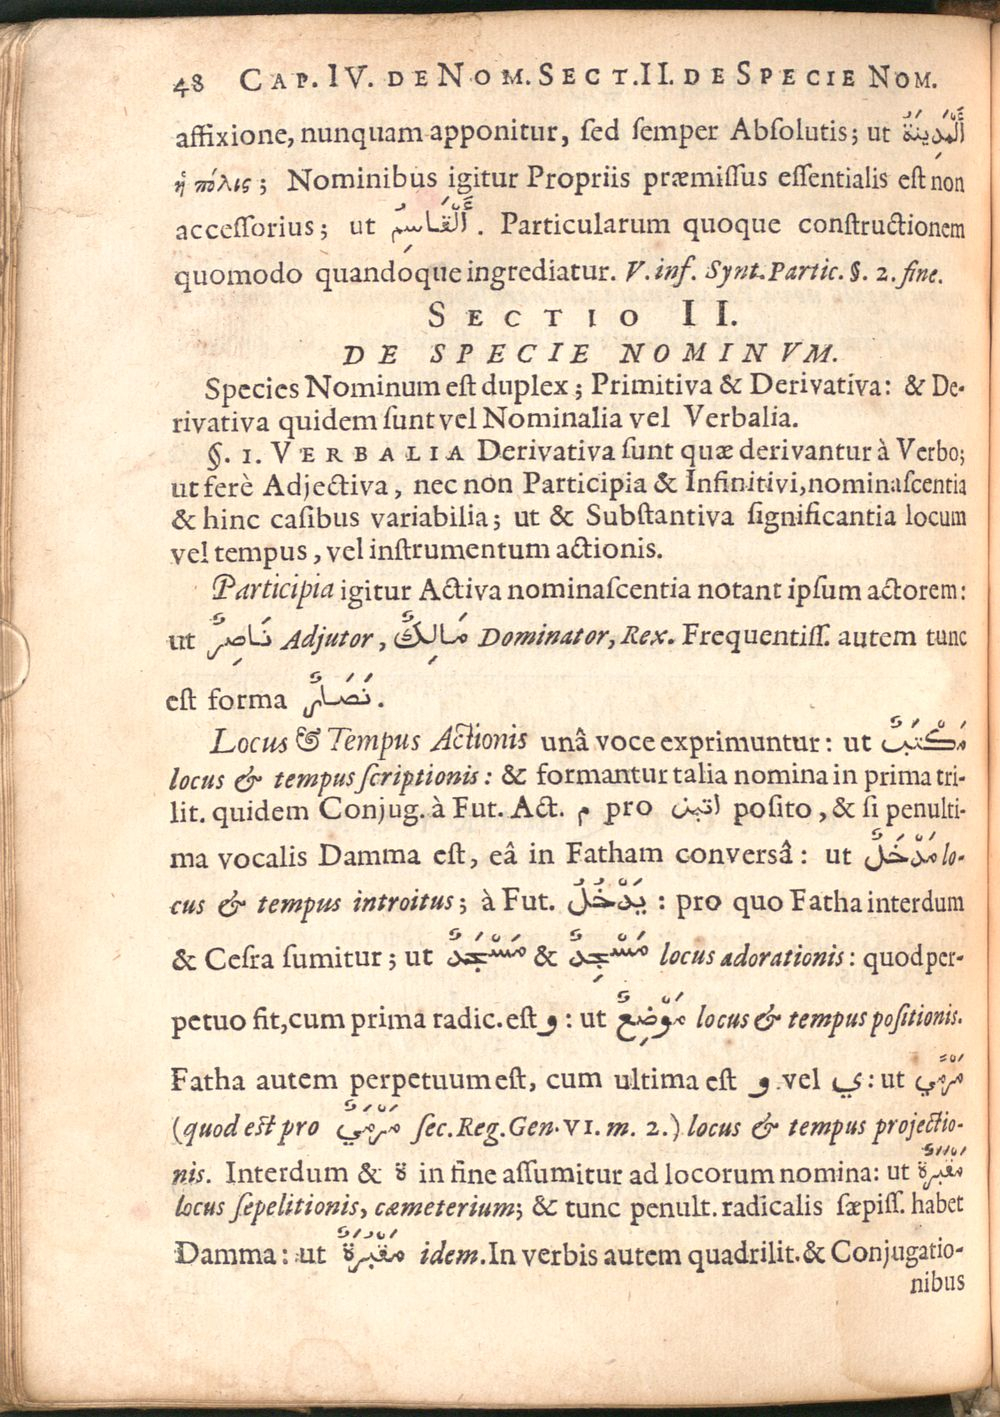 48 CAP. IV. DE NOM. SECT. II. DE SPECIE NOM.
affixione, nunquam apponitur, ſed ſemper Abſolutis; ut أَلْمَدِينَةُ
ἡ πόλις; Nominibus igitur Propriis præmiſſus eſſentialis eſt non
acceſſorius; ut أَلْقَاسِمُ. Particularum quoque conſtructionem
quomodo quandoque ingrediatur. V. inf. Synt. Partic. §. 2. fine.
SECTIO II.
DE SPECIE NOMINVM.
Species Nominum eſt duplex; Primitiva & Derivativa: & De-
rivativa quidem ſunt vel Nominalia vel Verbalia.
§. 1. VERBALIA Derivativa ſunt quæ derivantur à Verbo;
ut ferè Adjectiva, nec non Participia & Infinitivi, nominaſcentia
& hinc caſibus variabilia; ut & Subſtantiva ſignificantia locum
vel tempus, vel inſtrumentum actionis.
Participia igitur Activa nominaſcentia notant ipſum actorem:
ut نَاصِرٌ Adjutor, مَالِكٌ Dominator, Rex. Frequentiſſ. autem tunc
eſt forma نَصَّارٌ.
Locus & Tempus Actionis unâ voce exprimuntur: ut مَكْتَبٌ
locus & tempus ſcriptionis: & formantur talia nomina in prima tri-
lit. quidem Conjug. à Fut. Act. م pro اتين poſito, & ſi penulti-
ma vocalis Damma eſt, eâ in Fatham conversâ: ut مَدْخَلٌ lo-
cus & tempus introitus; à Fut. يَدْخُلُ: pro quo Fatha interdum
& Ceſra ſumitur; ut مَسْجَدٌ & مَسْجِدٌ locus adorationis: quod per-
petuo fit, cum prima radic. eſt و: ut مَوْضِعٌ locus & tempus poſitionis.
Fatha autem perpetuum eſt, cum ultima eſt و vel ي: ut مَرْمًي
(quod eſt pro مَرْمَيٌ ſec. Reg. Gen. VI. m. 2.) locus & tempus projectio-
nis. Interdum & ة in fine aſſumitur ad locorum nomina: ut مَقْبَرَةٌ
locus ſepelitionis, cæmeterium; & tunc penult. radicalis ſæpiſſ. habet
Damma: ut مَقْبُرَةٌ idem. In verbis autem quadrilit. & Conjugatio-
nibus